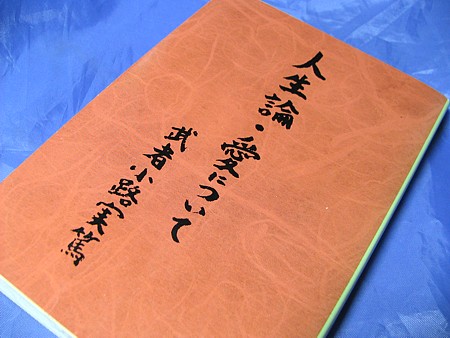 人生論・愛について
武者小路実篤